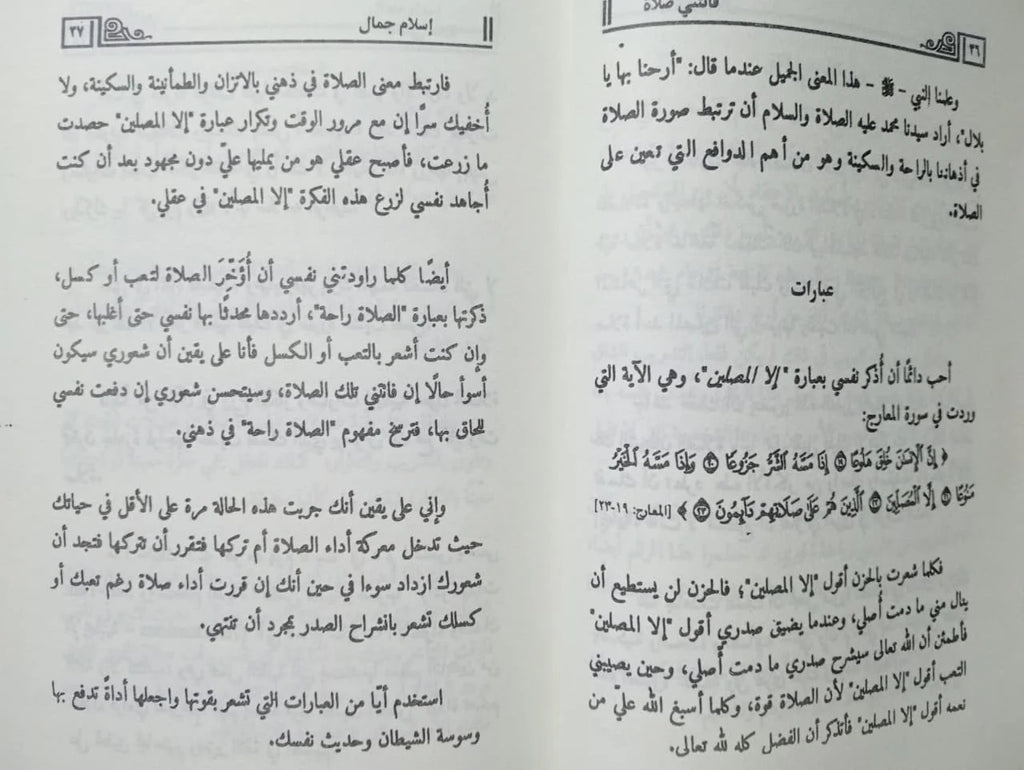 ٣٦
فاتتني صلاة
وعلمنا النبي - ﷺ - هذا المعنى الجميل عندما قال: "أرحنا بها يا
بلال"، أراد سيدنا محمد عليه الصلاة والسلام أن ترتبط صورة الصلاة
في أذهاننا بالراحة والسكينة وهو من أهم الدوافع التي تعين على
الصلاة.
عبارات
أحب دائمًا أن أُذكر نفسي بعبارة "إلا المصلين"، وهي الآية التي
وردت في سورة المعارج:
﴿ إِنَّ ٱلْإِنسَٰنَ خُلِقَ هَلُوعًا ١٩ إِذَا مَسَّهُ ٱلشَّرُّ جَزُوعًا ٢٠ وَإِذَا مَسَّهُ ٱلْخَيْرُ
مَنُوعًا ٢١ إِلَّا ٱلْمُصَلِّينَ ٢٢ ٱلَّذِينَ هُمْ عَلَىٰ صَلَاتِهِمْ دَآئِمُونَ ٢٣ ﴾ [المعارج: ١٩-٢٣]
فكلما شعرت بالحزن أقول "إلا المصلين"؛ فالحزن لن يستطيع أن
ينال مني ما دمت أُصلي، وعندما يضيق صدري أقول "إلا المصلين"
فأطمئن أن الله تعالى سيشرح صدري ما دمت أُصلي، وحين يصيبني
التعب أقول "إلا المصلين" لأن الصلاة قوة، وكلما أسبغ الله عليّ من
نعمه أقول "إلا المصلين" فأتذكر أن الفضل كله لله تعالى.
إسلام جمال
٣٧
فارتبط معنى الصلاة في ذهني بالاتزان والطمأنينة والسكينة، ولا
أُخفيك سرًا إن مع مرور الوقت وتكرار عبارة "إلا المصلين" حصدت
ما زرعت، فأصبح عقلي هو من يمليها عليّ دون مجهود بعد أن كنت
أُجاهد نفسي لزرع هذه الفكرة "إلا المصلين" في عقلي.
أيضًا كلما راودتني نفسي أن أُؤَخِّرَ الصلاة لتعب أو كسل،
ذكرتها بعبارة "الصلاة راحة"، أرددها محدثًا بها نفسي حتى أغلبها، حتى
وإن كنت أشعر بالتعب أو الكسل فأنا على يقين أن شعوري سيكون
أسوأ حالًا إن فاتتني تلك الصلاة، وسيتحسن شعوري إن دفعت نفسي
للحاق بها، فترسخ مفهوم "الصلاة راحة" في ذهني.
وإني على يقين أنك جربت هذه الحالة مرة على الأقل في حياتك
حيث تدخل معركة أداء الصلاة أم تركها فتقرر أن تتركها فتجد أن
شعورك ازداد سوءا في حين أنك إن قررت أداء صلاة رغم تعبك أو
كسلك تشعر بانشراح الصدر بمجرد أن تنتهي.
استخدم أيًا من العبارات التي تشعر بقوتها واجعلها أداةً تدفع بها
وسوسة الشيطان وحديث نفسك.